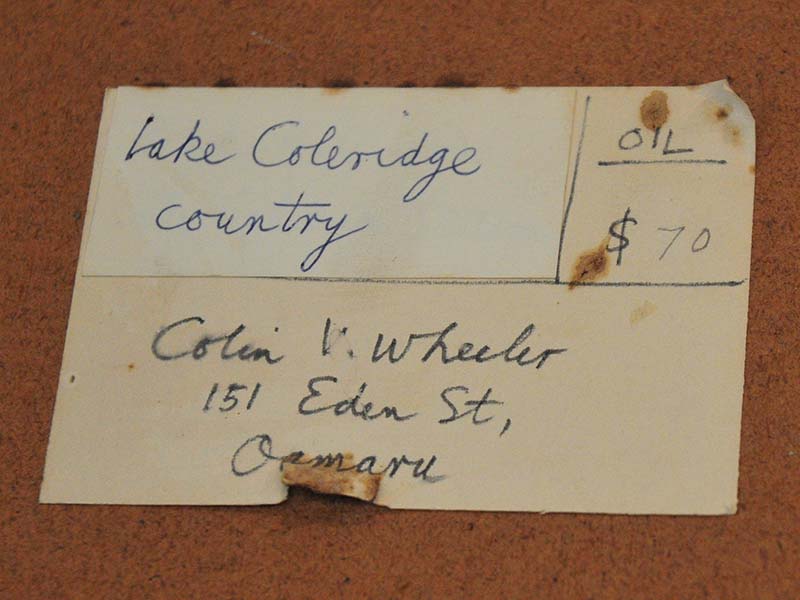 Lake Coleridge
country
OIL
$ 70
Colin V. Wheeler
151 Eden St,
Oamaru